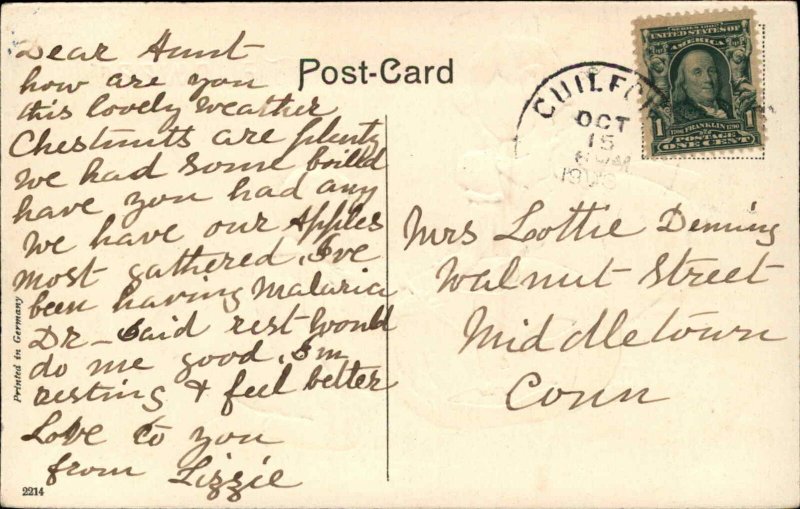 Dear Aunt
how are you
this lovely weather
Chestnutts are plenty
We had some boild
have you had any
We have our Apples
most gathered. I've
been having Malaria
Dr - Said rest Would
do me good. I'm
resting & feel better
Love to you
from Lizzie
Printed in Germany
2214
Post-Card
GUILFO
OCT
15
SERIES 1902
UNITED STATES OF
AMERICA
1 FRANKLIN 1790 1
POSTAGE
ONE CENT
Mrs Lottie Deming
Walnut Street
Middletown
Conn